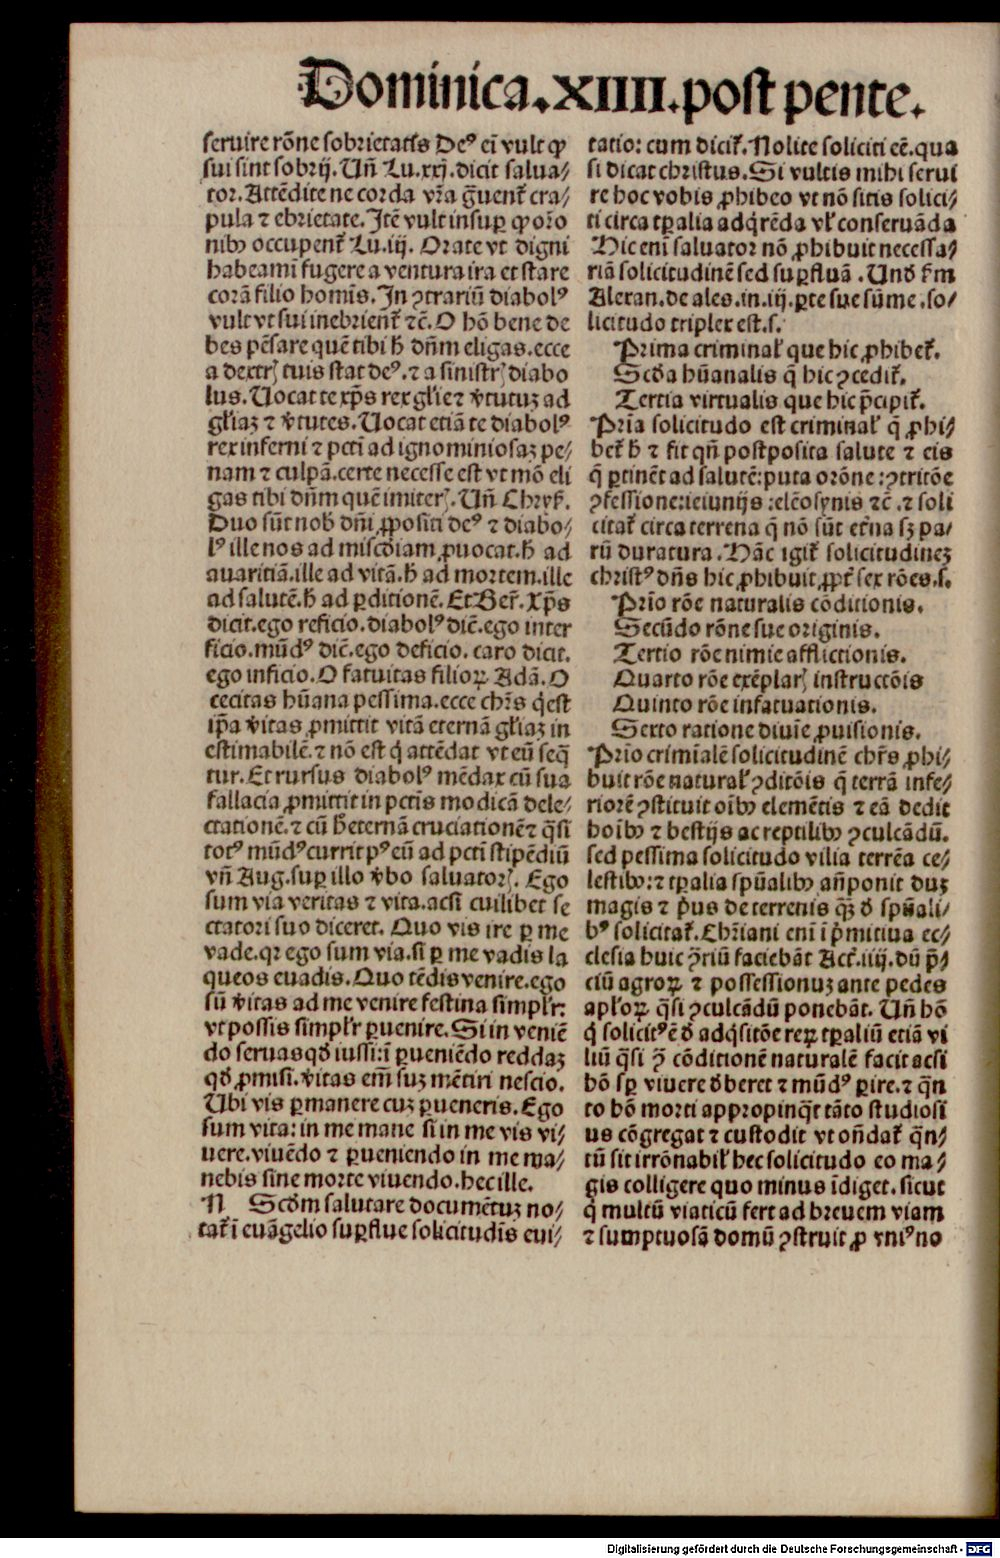 Dominica.XIIII.post pente.
seruire rōne sobrietatſs Deꝰ em̄ vult ꝙ
sui sint sobrij. Un̄ Lu.xxj. dicit salua/
tor. Attēdite ne corda vr̄a g̃uent̃ cra/
pula ⁊ ebrietate. Itē vult insuꝑ ꝙ or̄o
nibꝫ occupent̃ Lu.iij. Orate vt digni
habeamī fugere a ventura ira et stare
corā filio homīs. In ꝯtrariū diabolꝰ
vult vt sui inebrient̃ ⁊c̄. O hō bene de
bes pēsare quē tibi h̄ dn̄m eligas. ecce
a dextrꝭ tuis stat deꝰ. ⁊ a sinistrꝭ diabo
lus. Uocat te xp̄s rex gl̄ie ⁊ v̓tutuꝫ ad
gl̄iaꝫ ⁊ v̓tutes. Uocat etiā te diabolꝰ
rex inferni ⁊ pctī ad ignominiosaꝫ pe/
nam ⁊ culpā. certe necesse est vt mō eli
gas tibi dn̄m quē imiterꝭ. Un̄ Chryſ.
Duo sūt nob̄ dn̄i ꝓpositi deꝰ ⁊ diabo/
lꝰ ille nos ad miscd̄iam ꝓuocat. h̄ ad
auaritiā. ille ad vitā. h̄ ad mortem. ille
ad salutē. h̄ ad ꝑditionē. Et Ber̃. Xp̄s
dicit. ego reficio. diabolꝰ dic̄. ego inter
ficio. mūdꝰ dic̄. ego deficio. caro dicit.
ego inficio. O fatuitas filioꝝ Adā. O
cecitas hūana pessima. ecce chr̄s q̇ est
ip̄a v̓itas ꝓmittit vitā eternā gl̄iaꝫ in
estimabilē. ⁊ nō est q̇ attēdat vt eū seq̄
tur. Et rursus diabolꝰ mēdax cū sua
fallacia ꝓmittit in pctīs modicā dele/
ctationē. ⁊ cū h̄ eternā cruciationē ⁊ q̄si
totꝰ mūdꝰ currit pꝰ eū ad pctī stipēdiū
vn̄ Aug. suꝑ illo v̓bo saluatorꝭ. Ego
sum via veritas ⁊ vita. acsi cuilibet se
ctatori suo diceret. Quo vis ire ꝑ me
vade. qꝛ ego sum via. si ꝑ me vadis la
queos euadis. Quo tēdis venire. ego
sū v̓itas ad me venire festina simpl̓r:
vt possis simpl̓r ꝑuenire. Si in veniē
do seruas qd̄ iussi: ī ꝑueniēdo reddaꝫ
qd̄ ꝓmisi. v̓itas em̄ suꝫ mētiri nescio.
Ubi vis ꝑmanere cuꝫ ꝑueneris. Ego
sum vita: in me mane si in me vis vi/
uere. viuēdo ⁊ ꝑueniendo in me ma/
nebis sine morte viuendo. hec ille.
N Scd̄m salutare documētuꝫ no/
tat̃ ī euāgelio suꝑflue solicitudīs eui/
tatio: cum dicit̃. Nolite soliciti eē. qua
si dicat christus. Si vultis mihi serui
re hoc vobis ꝓhibeo vt nō sitis solici/
ti circa tꝑalia adq̇rēda vl̓ conseruāda
Hic enī saluator nō ꝓhibuit necessa/
riā solicitudinē sed suꝑfluā. Und̄ ẜm
Alexan. de ales. in. iij. ꝑte sue sūme. so/
licitudo triplex est. ſ.
Prima criminal̓ que hic ꝓhibet̃.
Scd̄a hūanalis q̄ hic ꝯcedit̃.
Tertia virtualis que hic p̄cipit̃.
Prīa solicitudo est criminal̓ q̄ ꝓhi/
bet̃ h̄ ⁊ fit qn̄ postposita salute ⁊ eis
q̄ ꝑtinēt ad salutē: puta orōne: ꝯtritōe
ꝯfessione: ieiunijs: elēosynis ⁊c̄. ⁊ soli
citat̃ circa terrena q̄ nō sūt et̓na sꝫ pa/
rū duratura. Hāc igit̃ solicitudineꝫ
christꝰ dn̄s hic ꝓhibuit ꝓpt̃ sex rōes. ſ.
Prīo rōe naturalis cōditionis.
Secūdo rōne sue originis.
Tertio rōe nimie afflictionis.
Quarto rōe exēplarꝭ instructōis
Quinto rōe infatuationis.
Sexto ratione diuīe ꝓuisionis.
Prīo crimīalē solicitudinē chr̄s ꝓhi/
buit rōe natural̓ ꝯditōis q̄ terrā infe/
riorē ꝯstituit oībꝫ elemētis ⁊ eā dedit
hoībꝫ ⁊ bestijs ac reptilibꝫ ꝯculcādū.
sed pessima solicitudo vilia terrēa ce/
lestibꝫ: ⁊ tꝑalia spūalibꝫ an̄ponit duꝫ
magis ⁊ p̓us de terrenis q̄ꝫ d̄ spūali/
bꝰ solicitat̃. Chr̄iani enī ī p̓mitiua ec/
clesia huic ꝯ̄riū faciebāt Act̃. iiij. dū p̄/
ciū agroꝝ ⁊ possessionuꝫ ante pedes
apl̓oꝝ q̄si ꝯculcādū ponebāt. Un̄ hō
q̇ solicitꝰ ē d̄ adq̇sitōe reꝝ tꝑaliū etiā vi
liū q̄si ꝯ̄ cōditionē naturalē facit acsi
hō sꝑ viuere d̄beret ⁊ mūdꝰ ꝑire. ⁊ q̄n
to hō morti appropinq̄t tāto studiosī
us cōgregat ⁊ custodit vt on̄dat̃ q̄n/
tū sit irrōnabil̓ hec solicitudo eo ma/
gis colligere quo minus īdiget. sicut
q̇ multū viaticū fert ad breuem viam
⁊ sumptuosā domū ꝯstruit ꝓ vniꝰ no
Digitalisierung gefördert durch die Deutsche Forschungsgemeinschaft - DFG